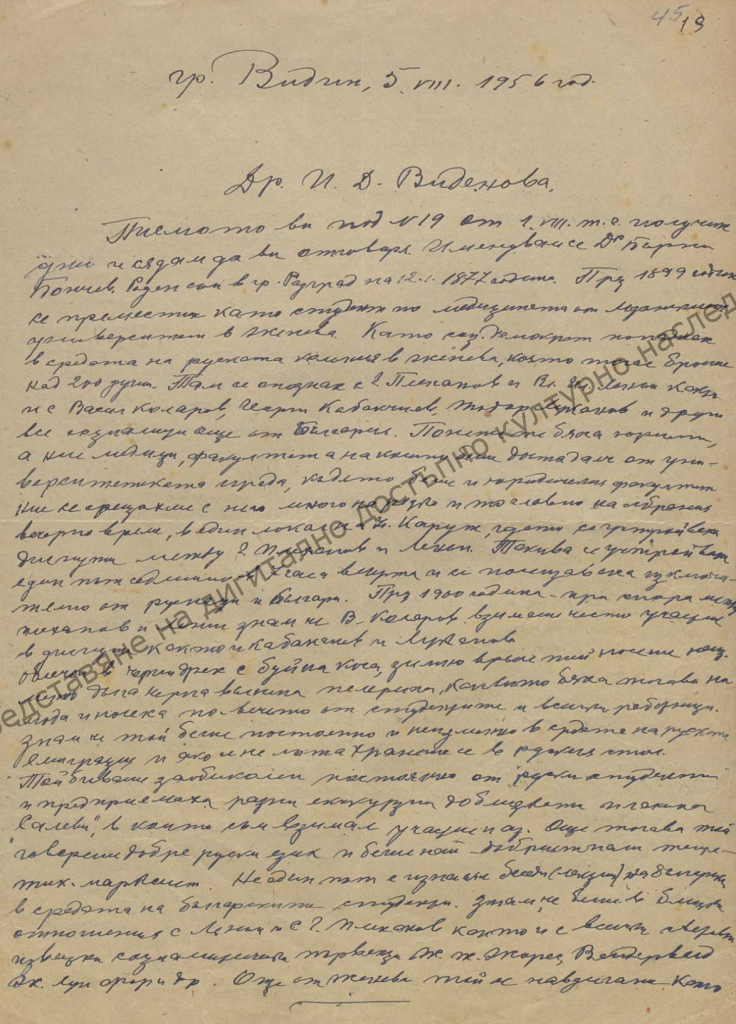 45 19
гр. Видин, 5.VIII.1956 год.
Др. И. Д. Виденова,
Писмото ви под №19 от 1.VIII. т.г. получих
и сядам да ви отговаря. Именувам се Др
Бончев. Роден съм в гр. на 12.I.1877 година. През 1899 година
се преместих като студент по медицината от
университет в Женева. Като соц. демократ попаднах
в средата на руската колония в Женева, която тогас броеше
над 200 души. Там се опознах с Г. Плеханов и Вл. Ил. Ленин както
и с Васил Коларов, Георги Кабакчиев, Тодор Луканов и други
все социалисти още от България. Понеже те бяха юристи,
а ние медици, факултета на които беше доста далеч от уни-
верситетската сграда, където беше и юридическия факултет
ние се срещахме с него много на рядко и то главно на събрания
вечерно време, в един локал на ул. Каруж, където се устройваха
диспути между Г. Плеханов и Ленин. Такива се устройваха
един път седмично и се посещаваха изключи-
телно от руснаци и българи. През 1900 година при спора между
Плеханов и Ленин знам че В. Коларов вземаше често участие
в диспути както и Кабакчиев и Луканов.
Облечен в черни дрехи с буйна коса, зимно време той носеше
дълга черна вълнена пелерина, каквито бяха тогава на
мода и носеха повечето от студентите и всички работници.
Знам че той беше постоянно и неизменно в средата на руската
емиграция и ако не се лъжа хранеше се в руския стол.
Той биваше заобиколен постоянно от руски студенти
и предприемаха разни екскурзии до близката планина
"Салев", в които съм вземал участие и аз. Още тогава той
говореше добре руски език и беше най-добрият наш теоре-
тик-марксист. Не един път е изнасял беседи (лекции) на български
в средата на българските студенти. Знам, че беше в близки
отношения с Ленин и с Г. Плеханов както и с всички
известни социалистически първенци Ж. Ж. Жорес, Вандервелд
и др. Още от Женева той се като
представяне на дигитално достъпно културно наслед